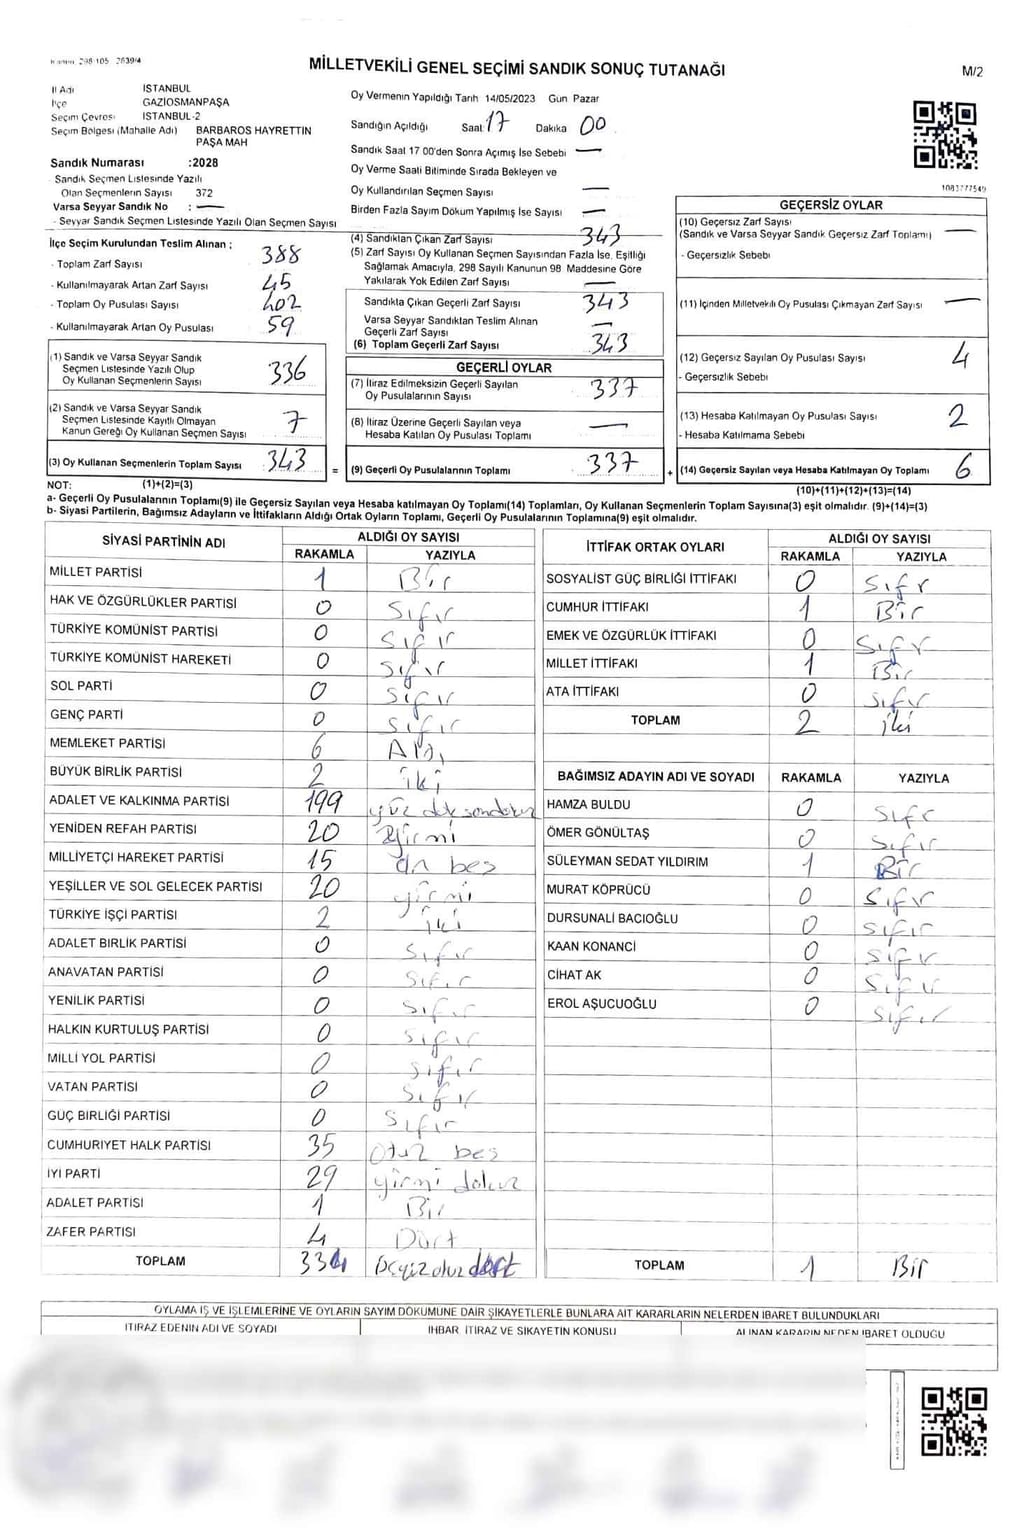 MİLLETVEKİLİ GENEL SEÇİMİ SANDIK SONUÇ TUTANAĞI
M/2
İl Adı İSTANBUL
İlçe GAZİOSMANPAŞA
Seçim Çevresi İSTANBUL-2
Seçim Bölgesi (Mahalle Adı) BARBAROS HAYRETTİN PAŞA MAH
Sandık Numarası :2028
Sandık Seçmen Listesinde Yazılı
Olan Seçmenlerin Sayısı 372
Varsa Seyyar Sandık No : —
- Seyyar Sandık Seçmen Listesinde Yazılı Olan Seçmen Sayısı
Oy Vermenin Yapıldığı Tarih 14/05/2023 Gün Pazar
Sandığın Açıldığı Saat: 17 Dakika 00
Sandık Saat 17 00'den Sonra Açımış İse Sebebi —
Oy Verme Saati Bitiminde Sırada Bekleyen ve
Oy Kullandırılan Seçmen Sayısı —
Birden Fazla Sayım Döküm Yapılmış İse Sayısı —
1083777549
İlçe Seçim Kurulundan Teslim Alınan ;
- Toplam Zarf Sayısı 388
- Kullanılmayarak Artan Zarf Sayısı 45
- Toplam Oy Pusulası Sayısı 402
- Kullanılmayarak Artan Oy Pusulası 59
(1) Sandık ve Varsa Seyyar Sandık
Seçmen Listesinde Yazılı Olup
Oy Kullanan Seçmenlerin Sayısı 336
(2) Sandık ve Varsa Seyyar Sandık
Seçmen Listesinde Kayıtlı Olmayan
Kanun Gereği Oy Kullanan Seçmen Sayısı 7
(3) Oy Kullanan Seçmenlerin Toplam Sayısı 343 =
(4) Sandıktan Çıkan Zarf Sayısı 343
(5) Zarf Sayısı Oy Kullanan Seçmen Sayısından Fazla İse, Eşitliği
Sağlamak Amacıyla, 298 Sayılı Kanunun 98 Maddesine Göre
Yakılarak Yok Edilen Zarf Sayısı —
Sandıkla Çıkan Geçerli Zarf Sayısı 343
Varsa Seyyar Sandıktan Teslim Alınan
Geçerli Zarf Sayısı —
(6) Toplam Geçerli Zarf Sayısı 343
GEÇERLİ OYLAR
(7) İtiraz Edilmeksizin Geçerli Sayılan
Oy Pusulalarının Sayısı 337
(8) İtiraz Üzerine Geçerli Sayılan veya
Hesaba Katılan Oy Pusulası Toplamı —
(9) Geçerli Oy Pusulalarının Toplamı 337 +
GEÇERSİZ OYLAR
(10) Geçersiz Zarf Sayısı
(Sandık ve Varsa Seyyar Sandık Geçersiz Zarf Toplamı) —
- Geçersizlik Sebebi
(11) İçinden Milletvekili Oy Pusulası Çıkmayan Zarf Sayısı —
(12) Geçersiz Sayılan Oy Pusulası Sayısı 4
- Geçersizlik Sebebi
(13) Hesaba Katılmayan Oy Pusulası Sayısı 2
- Hesaba Katılmama Sebebi
(14) Geçersiz Sayılan veya Hesaba Katılmayan Oy Toplamı 6
NOT: (1)+(2)=(3) (10)+(11)+(12)+(13)=(14)
a- Geçerli Oy Pusulalarının Toplamı(9) ile Geçersiz Sayılan veya Hesaba katılmayan Oy Toplamı(14) Toplamları, Oy Kullanan Seçmenlerin Toplam Sayısına(3) eşit olmalıdır. (9)+(14)=(3)
b- Siyasi Partilerin, Bağımsız Adayların ve İttifakların Aldığı Ortak Oyların Toplamı, Geçerli Oy Pusulalarının Toplamına(9) eşit olmalıdır.
SİYASİ PARTİNİN ADI ALDIĞI OY SAYISI
RAKAMLA YAZIYLA
MİLLET PARTİSİ 1 Bir
HAK VE ÖZGÜRLÜKLER PARTİSİ 0 Sıfır
TÜRKİYE KOMÜNİST PARTİSİ 0 Sıfır
TÜRKİYE KOMÜNİST HAREKETİ 0 Sıfır
SOL PARTİ 0 Sıfır
GENÇ PARTİ 0 Sıfır
MEMLEKET PARTİSİ 6 Altı
BÜYÜK BİRLİK PARTİSİ 2 iki
ADALET VE KALKINMA PARTİSİ 199 yüz doksandokuz
YENİDEN REFAH PARTİSİ 20 yirmi
MİLLİYETÇİ HAREKET PARTİSİ 15 on beş
YEŞİLLER VE SOL GELECEK PARTİSİ 20 yirmi
TÜRKİYE İŞÇİ PARTİSİ 2 iki
ADALET BİRLİK PARTİSİ 0 Sıfır
ANAVATAN PARTİSİ 0 Sıfır
YENİLİK PARTİSİ 0 Sıfır
HALKIN KURTULUŞ PARTİSİ 0 Sıfır
MİLLİ YOL PARTİSİ 0 Sıfır
VATAN PARTİSİ 0 Sıfır
GÜÇ BİRLİĞİ PARTİSİ 0 Sıfır
CUMHURİYET HALK PARTİSİ 35 otuz beş
İYİ PARTİ 29 yirmi dokuz
ADALET PARTİSİ 1 Bir
ZAFER PARTİSİ 4 Dört
TOPLAM 334
İTTİFAK ORTAK OYLARI ALDIĞI OY SAYISI
RAKAMLA YAZIYLA
SOSYALİST GÜÇ BİRLİĞİ İTTİFAKI 0 Sıfır
CUMHUR İTTİFAKI 1 Bir
EMEK VE ÖZGÜRLÜK İTTİFAKI 0 Sıfır
MİLLET İTTİFAKI 1 Bir
ATA İTTİFAKI 0 Sıfır
TOPLAM 2 iki
BAĞIMSIZ ADAYIN ADI VE SOYADI RAKAMLA YAZIYLA
HAMZA BULDU 0 Sıfır
ÖMER GÖNÜLTAŞ 0 Sıfır
SÜLEYMAN SEDAT YILDIRIM 1 Bir
MURAT KÖPRÜCÜ 0 Sıfır
DURSUNALİ BACIOĞLU 0 Sıfır
KAAN KONANCİ 0 Sıfır
CİHAT AK 0 Sıfır
EROL AŞUCUOĞLU 0 Sıfır
TOPLAM 1 Bir
OYLAMA İŞ VE İŞLEMLERİNE VE OYLARIN SAYIM DÖKÜMÜNE DAİR ŞİKAYETLERLE BUNLARA AİT KARARLARIN NELERDEN İBARET BULUNDUKLARI
İTİRAZ EDENİN ADI VE SOYADI İHBAR İTİRAZ VE ŞİKAYETİN KONUSU ALINAN KARARIN NEDEN İBARET OLDUĞU